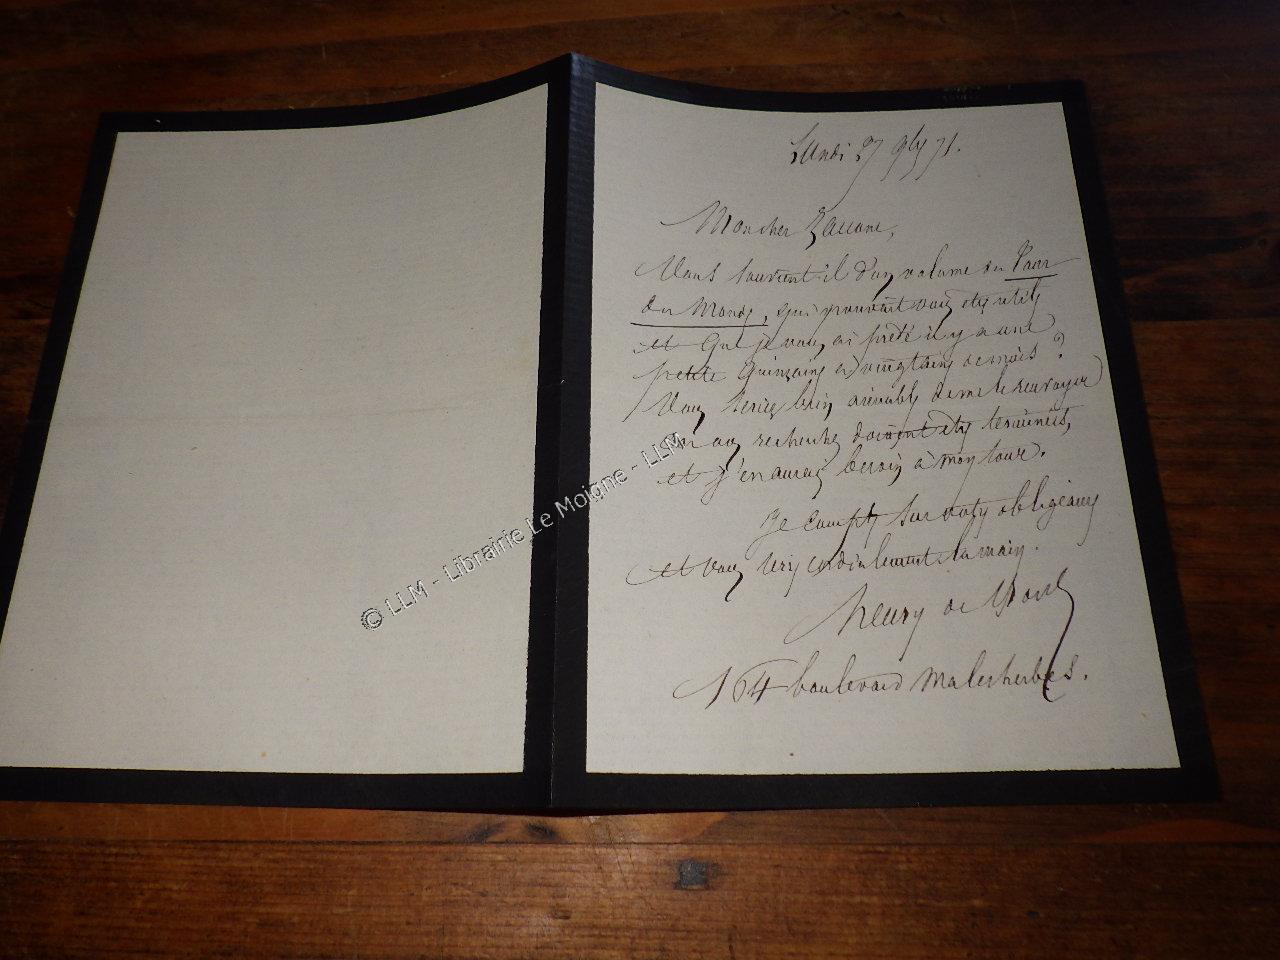 Lundi 27 9bre 71.
Mon cher Zaccone,
Vous souvient-il d'un volume du Tour
du Monde, qui pouvait vous être utile
et que je vous ai prêté il y a une
petite quinzaine de vingtaine de mois ?
Vous seriez bien aimable de me le renvoyer
vos recherches doivent être terminées,
et j'en aurais besoin à mon tour.
Je compte sur votre obligeance
et vous serre cordialement la main.
Henry de
164 boulevard Malesherbes.
© LLM - Librairie Le Moigne - LLM